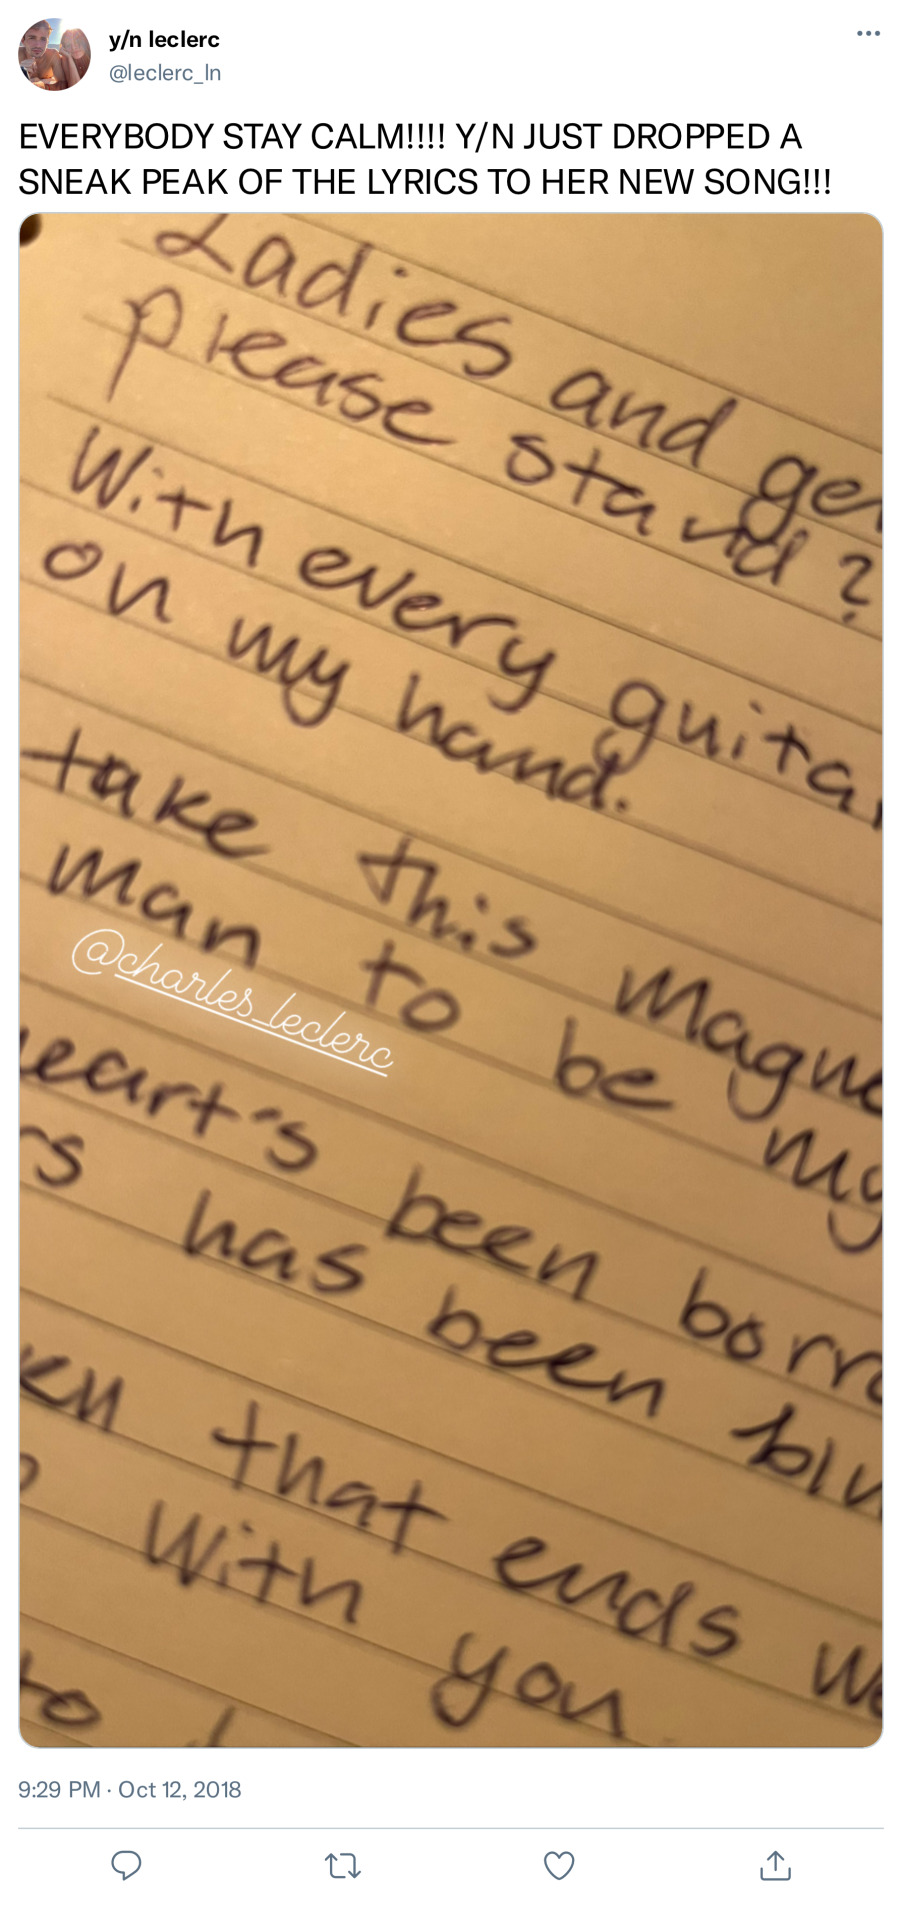 y/n leclerc
@leclerc_ln
EVERYBODY STAY CALM!!!! Y/N JUST DROPPED A
SNEAK PEAK OF THE LYRICS TO HER NEW SONG!!!
Ladies and gen
please stand?
With every guitar
on my hand.
take this magne
man to be my
@charles_leclerc
eart's been borro
rs has been blu
en that ends we
with you
to
9:29 PM · Oct 12, 2018